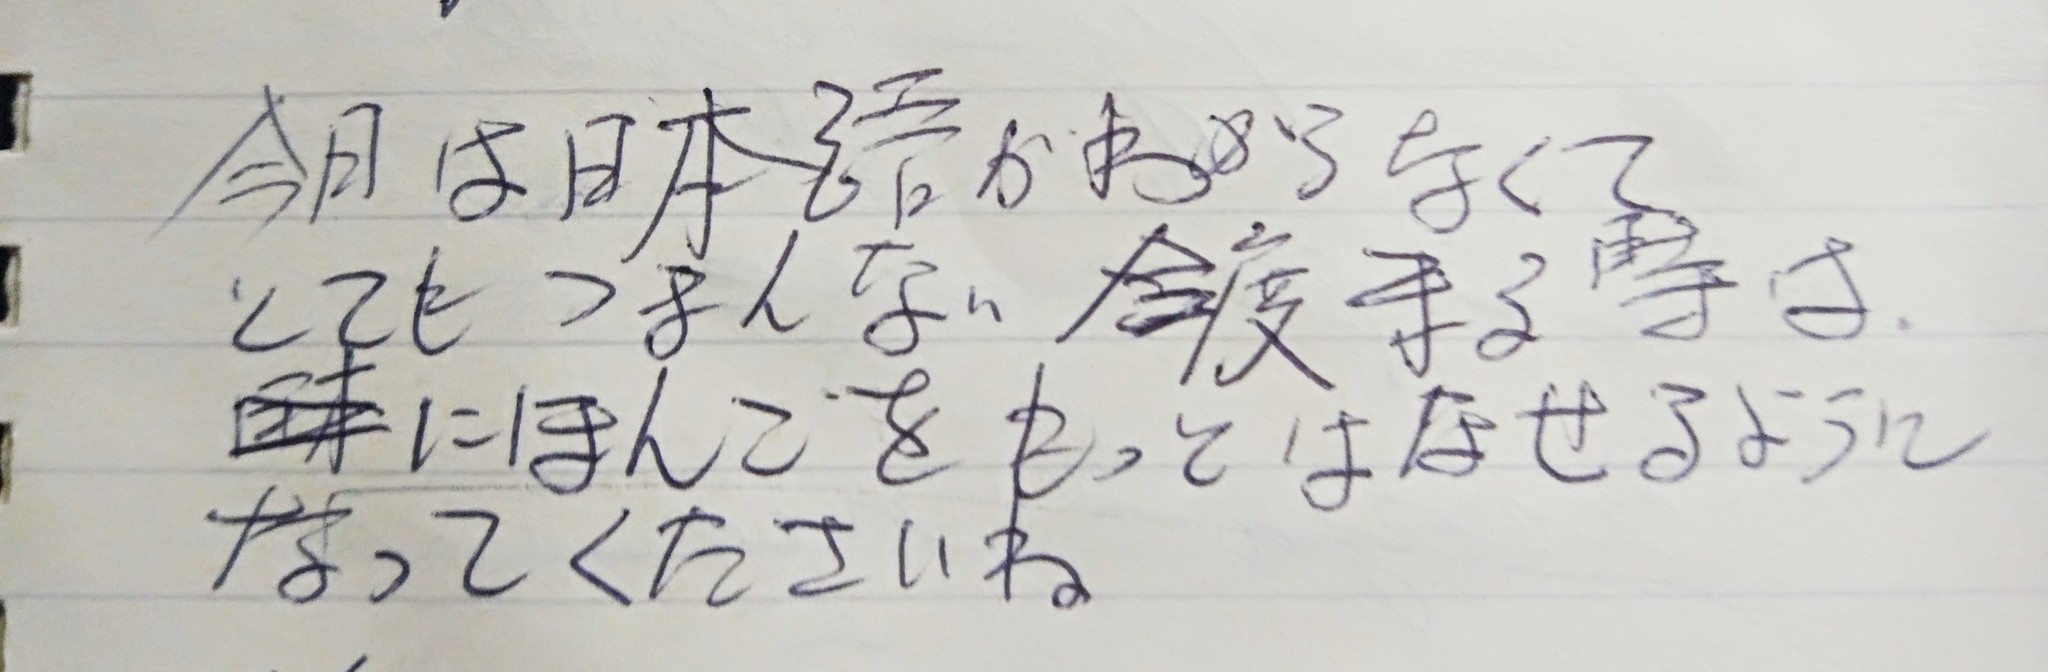 今日は日本語がわからなくて
とてもつまんない 今度来る事は
にほんごをもっとはなせるように
なってくださいね